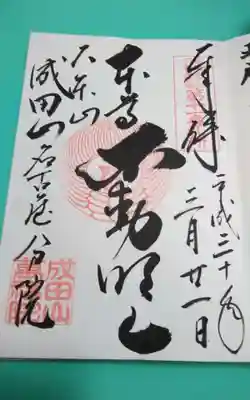 奉拝 平成二十年
三月廿一日
本尊
不動明王
大本山
成田山名古屋別院
成田山